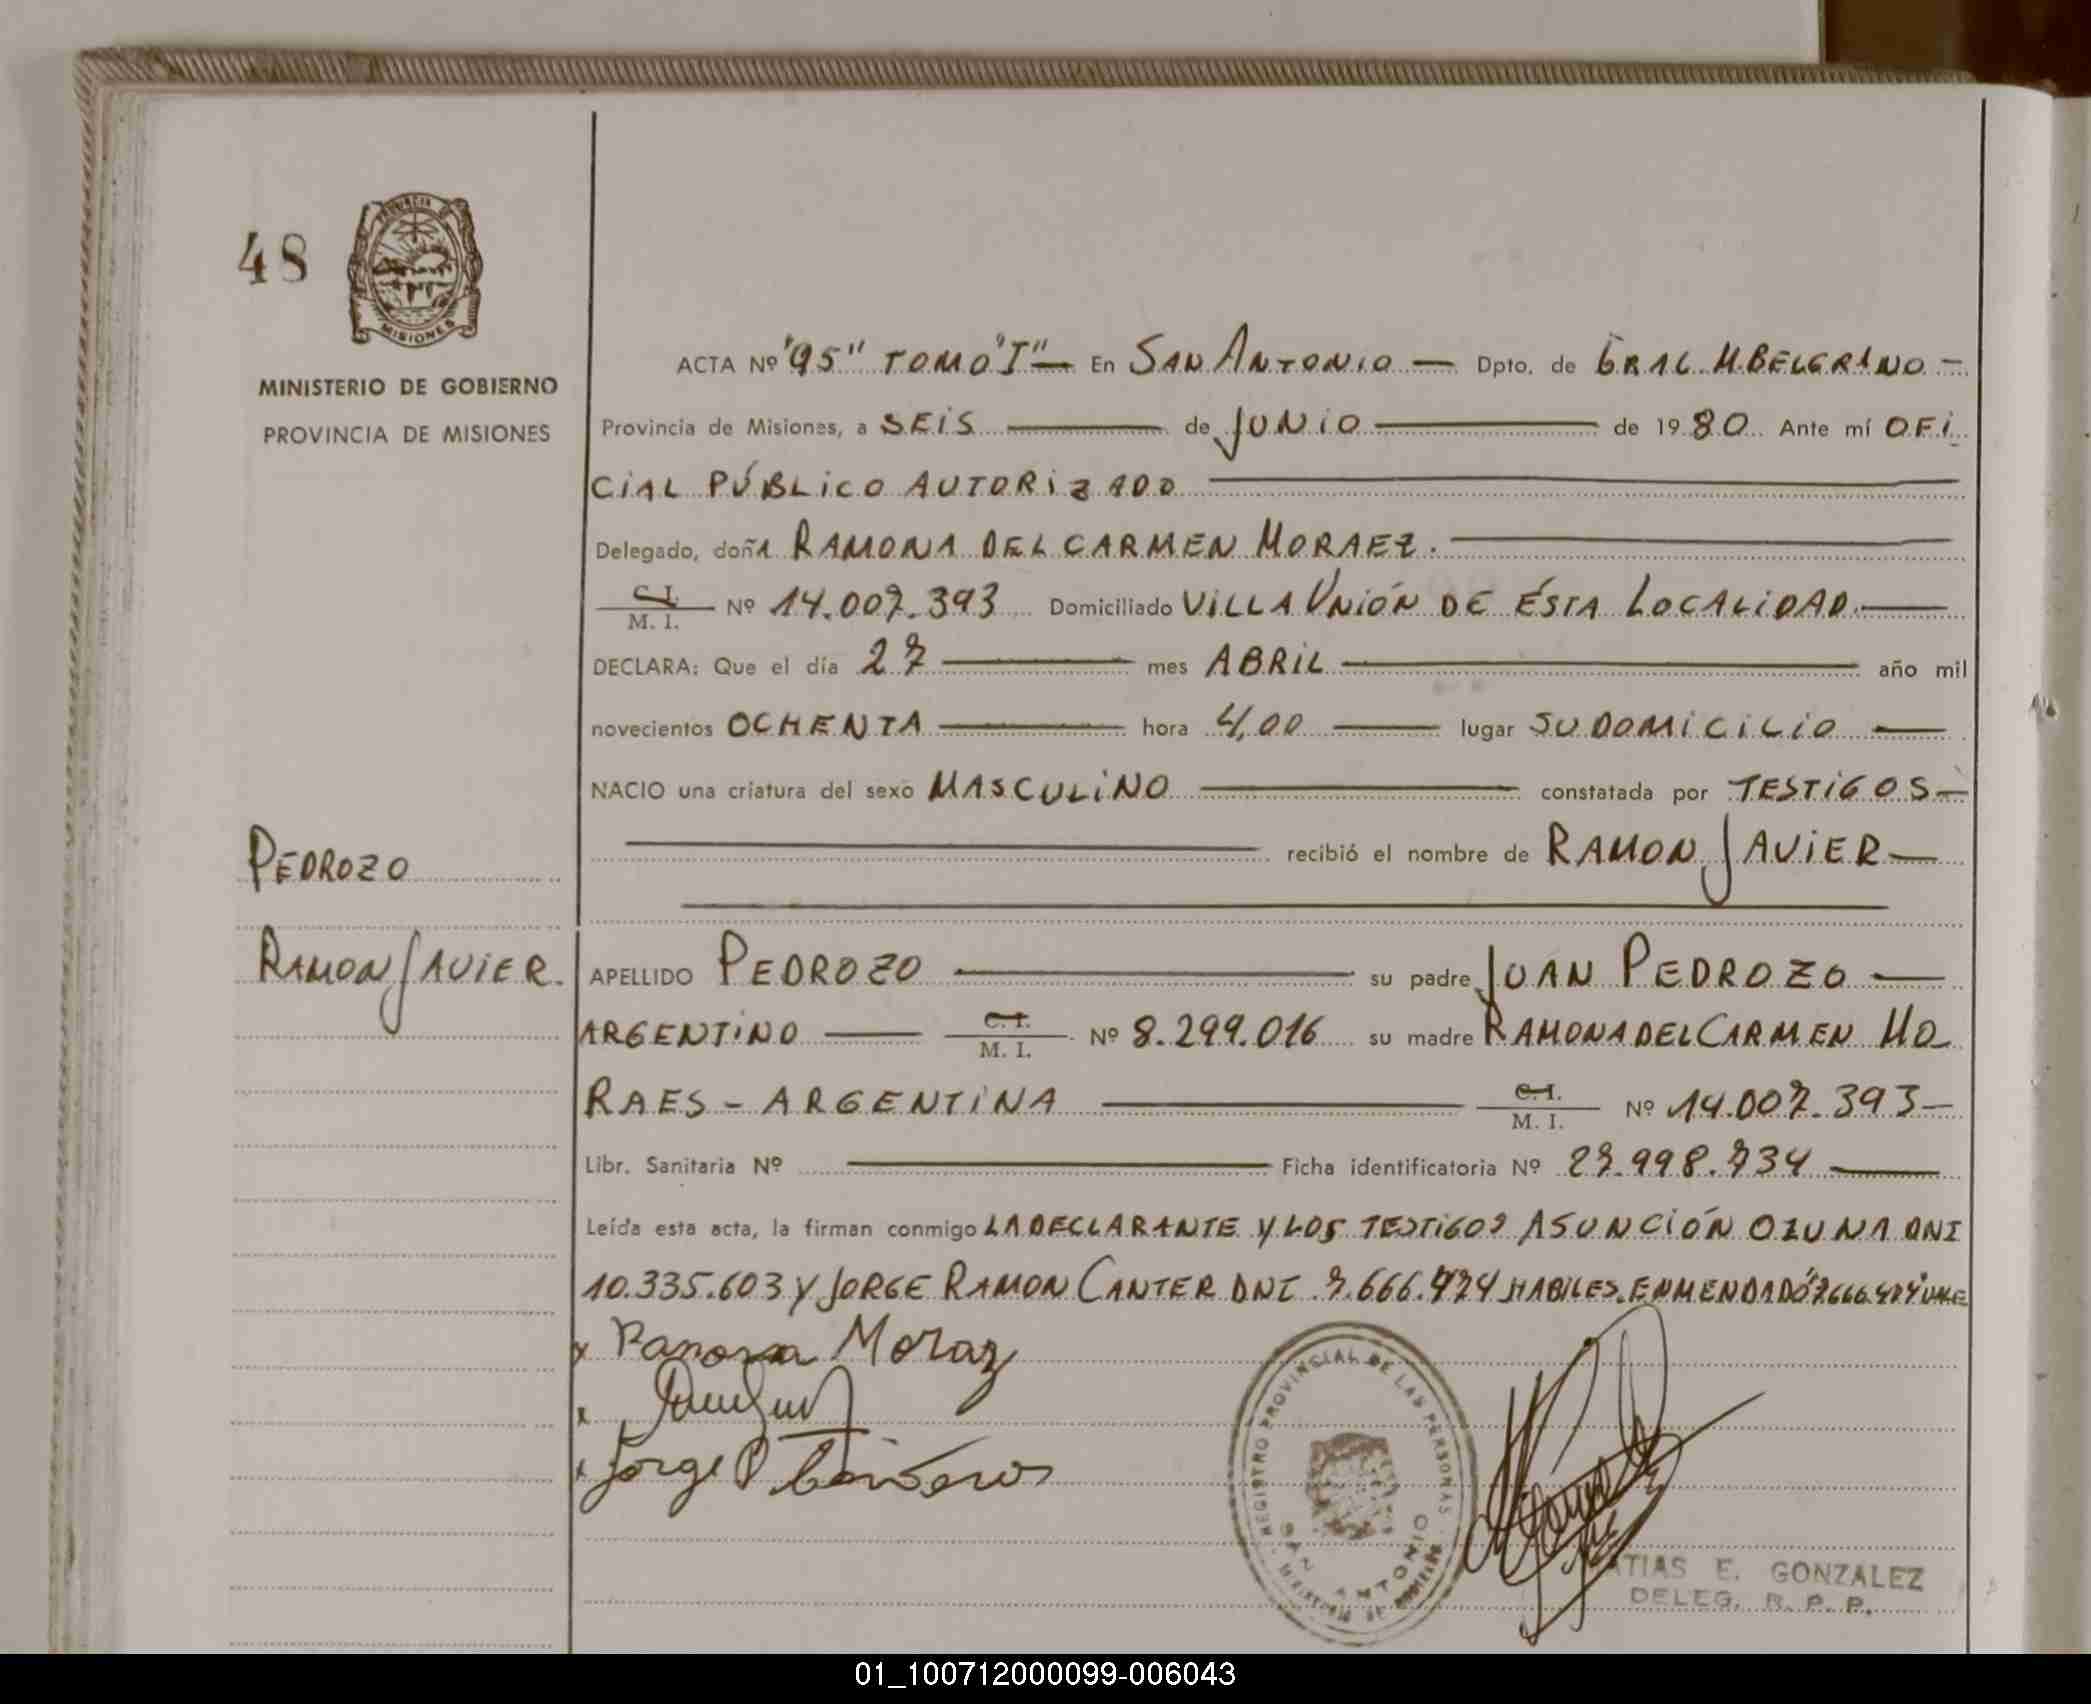 48
PROVINCIA DE
MISIONES
MINISTERIO DE GOBIERNO
PROVINCIA DE MISIONES
ACTA Nº "95" TOMO "I" — En SAN ANTONIO — Dpto. de GRAL. M. BELGRANO —
Provincia de Misiones, a SEIS — de JUNIO — de 1980 Ante mí OFI
CIAL PÚBLICO AUTORIZADO
Delegado, doña RAMONA DEL CARMEN MORAEZ.
C. I.
M. I. Nº 14.007.393 Domiciliado VILLA UNIÓN DE ÉSTA LOCALIDAD.—
DECLARA: Que el día 27 — mes ABRIL — año mil
novecientos OCHENTA — hora 4,00 — lugar SU DOMICILIO —
NACIO una criatura del sexo MASCULINO — constatada por TESTIGOS —
recibió el nombre de RAMON JAVIER —
PEDROZO
RAMON JAVIER.
APELLIDO PEDROZO — su padre JUAN PEDROZO —
ARGENTINO — C. I. M. I. Nº 8.299.016 su madre RAMONA DEL CARMEN MO
RAES - ARGENTINA — C. I. M. I. Nº 14.007.393 —
Libr. Sanitaria Nº — Ficha identificatoria Nº 27.998.734 —
Leída esta acta, la firman conmigo LA DECLARANTE Y LOS TESTIGOS ASUNCIÓN OZUNA DNI
10.335.603 Y JORGE RAMON CANTER DNI 7.666.474 HABILES. ENMENDADO "7.666.474" VALE
x Ramona Moraz
x
x Jorge R
REGISTRO PROVINCIAL DE LAS PERSONAS
SAN ANTONIO
MINISTERIO DE GOBIERNO
ATIAS E. GONZALEZ
DELEG. R. P. P.
01_100712000099-006043